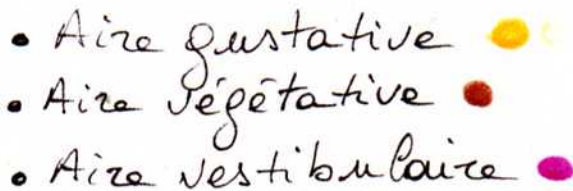 • Aire gustative
• Aire végétative
• Aire vestibulaire